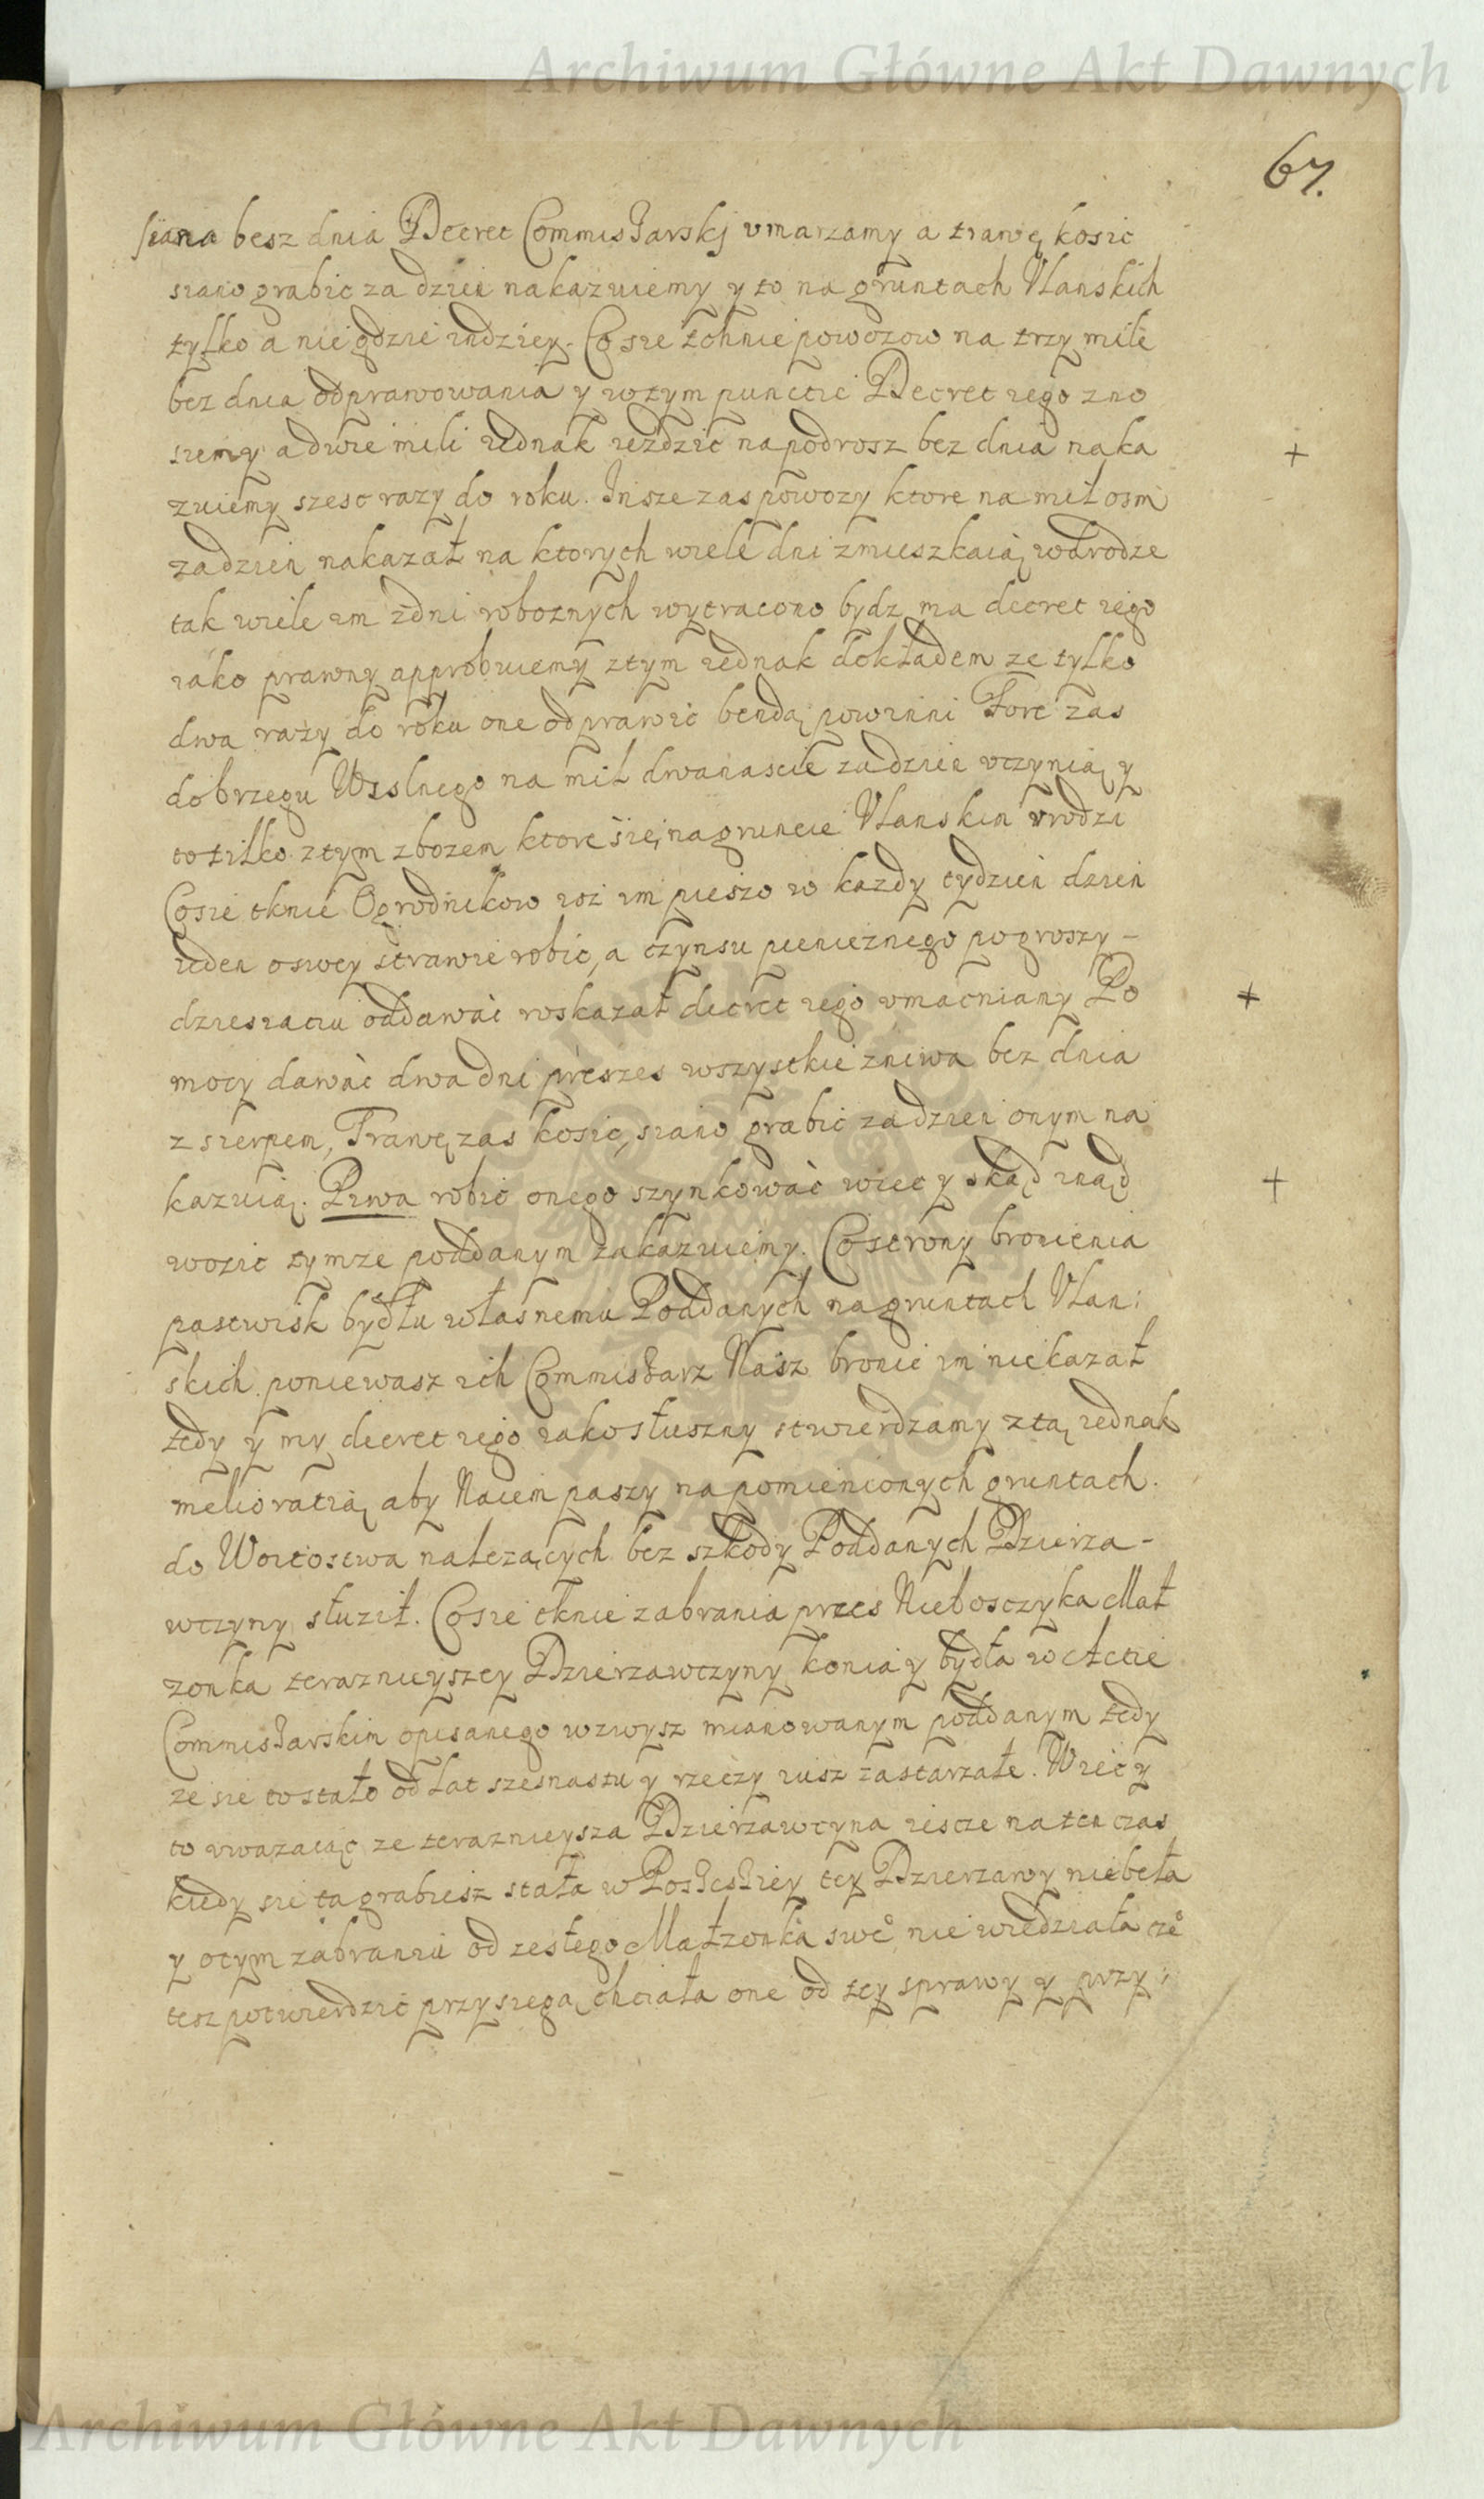 Archiwum Główne Akt Dawnych
67.
siana besz dnia Decret Commissarskj vmarzamy a trawę kosic
siano grabic za dzien nakazuiemy y to na gruntach Vlanskich
tylko a nie gdzie indziey. Co sie tchnie powozow na trzy mile
bez dnia odprawowania y w tym punctie Decret iego zno
siemy a dwie mili iednak iezdzic na podrosz bez dnia naka
zuiemy szesc razy do roku. Insze zas powozy ktore na mil osm
za dzien nakazał na ktorych wiele dni zmieszkaią w drodze
tak wiele im z dni robotnych wytracono bydz ma decret iego
iako prawny approbuiemy z tym iednak dokładem ze tylko
dwa razy do roku one odprawic bendą powinni Fore zas
do brzegu Wislnego na mil dwanascie za dzien vczynią y
to tilko z tym zbozem ktore się na gruncie Vlanskim vrodzi
Co sie tknie Ogrodnikow isz im pieszo w kazdy tydzien dzien
ieden o swey strawie robic, a czynsu pienieznego po groszy -
dziesiaciu oddawać wskazał decret iego vmacniamy Po
mocy dawać dwa dni przeszes wszystkie zniwa bez dnia
z sierpem, Trawę zas kosic, siano grabic za dzien onym na
kazuią. Piwa robic onego szynkować wiec y skąd inąd
wozic tymze poddanym zakazuiemy. Co strony bronienia
pastwisk bydłu własnemu Poddanych na gruntach Vlan:
skich poniewasz ich Commissarz Nasz bronic im nie kazał
tedy y my decret iego iako słuszny stwierdzamy z tą iednak
melioratią aby Naiem paszy na pomienionych gruntach.
do Woitostwa nalezących bez szkody Poddanych Dzierza-
wczyny słuził. Co sie tknie zabrania przes Nieboszczyka Mał
zonka teraznieyszey Dzierzawczyny konia y bydła w Actie
Commissarskim opisanego wzwysz mianowanym poddanym tedy
ze sie to stało od lat szesnastu y rzeczy iusz zastarzałe. Wiec y
to vwazaiąc ze teraznieysza Dzierzawcyna iescze na ten czas
kiedy sie ta grabiesz stała w Possessiey tey Dzierzawy nie beła
y o tym zabraniu od zesłego Małzonka swe° nie wiedziała cze°
tesz potwierdzic przysiegą chciała one od tey sprawy y przy:
Archiwum Główne Akt Dawnych